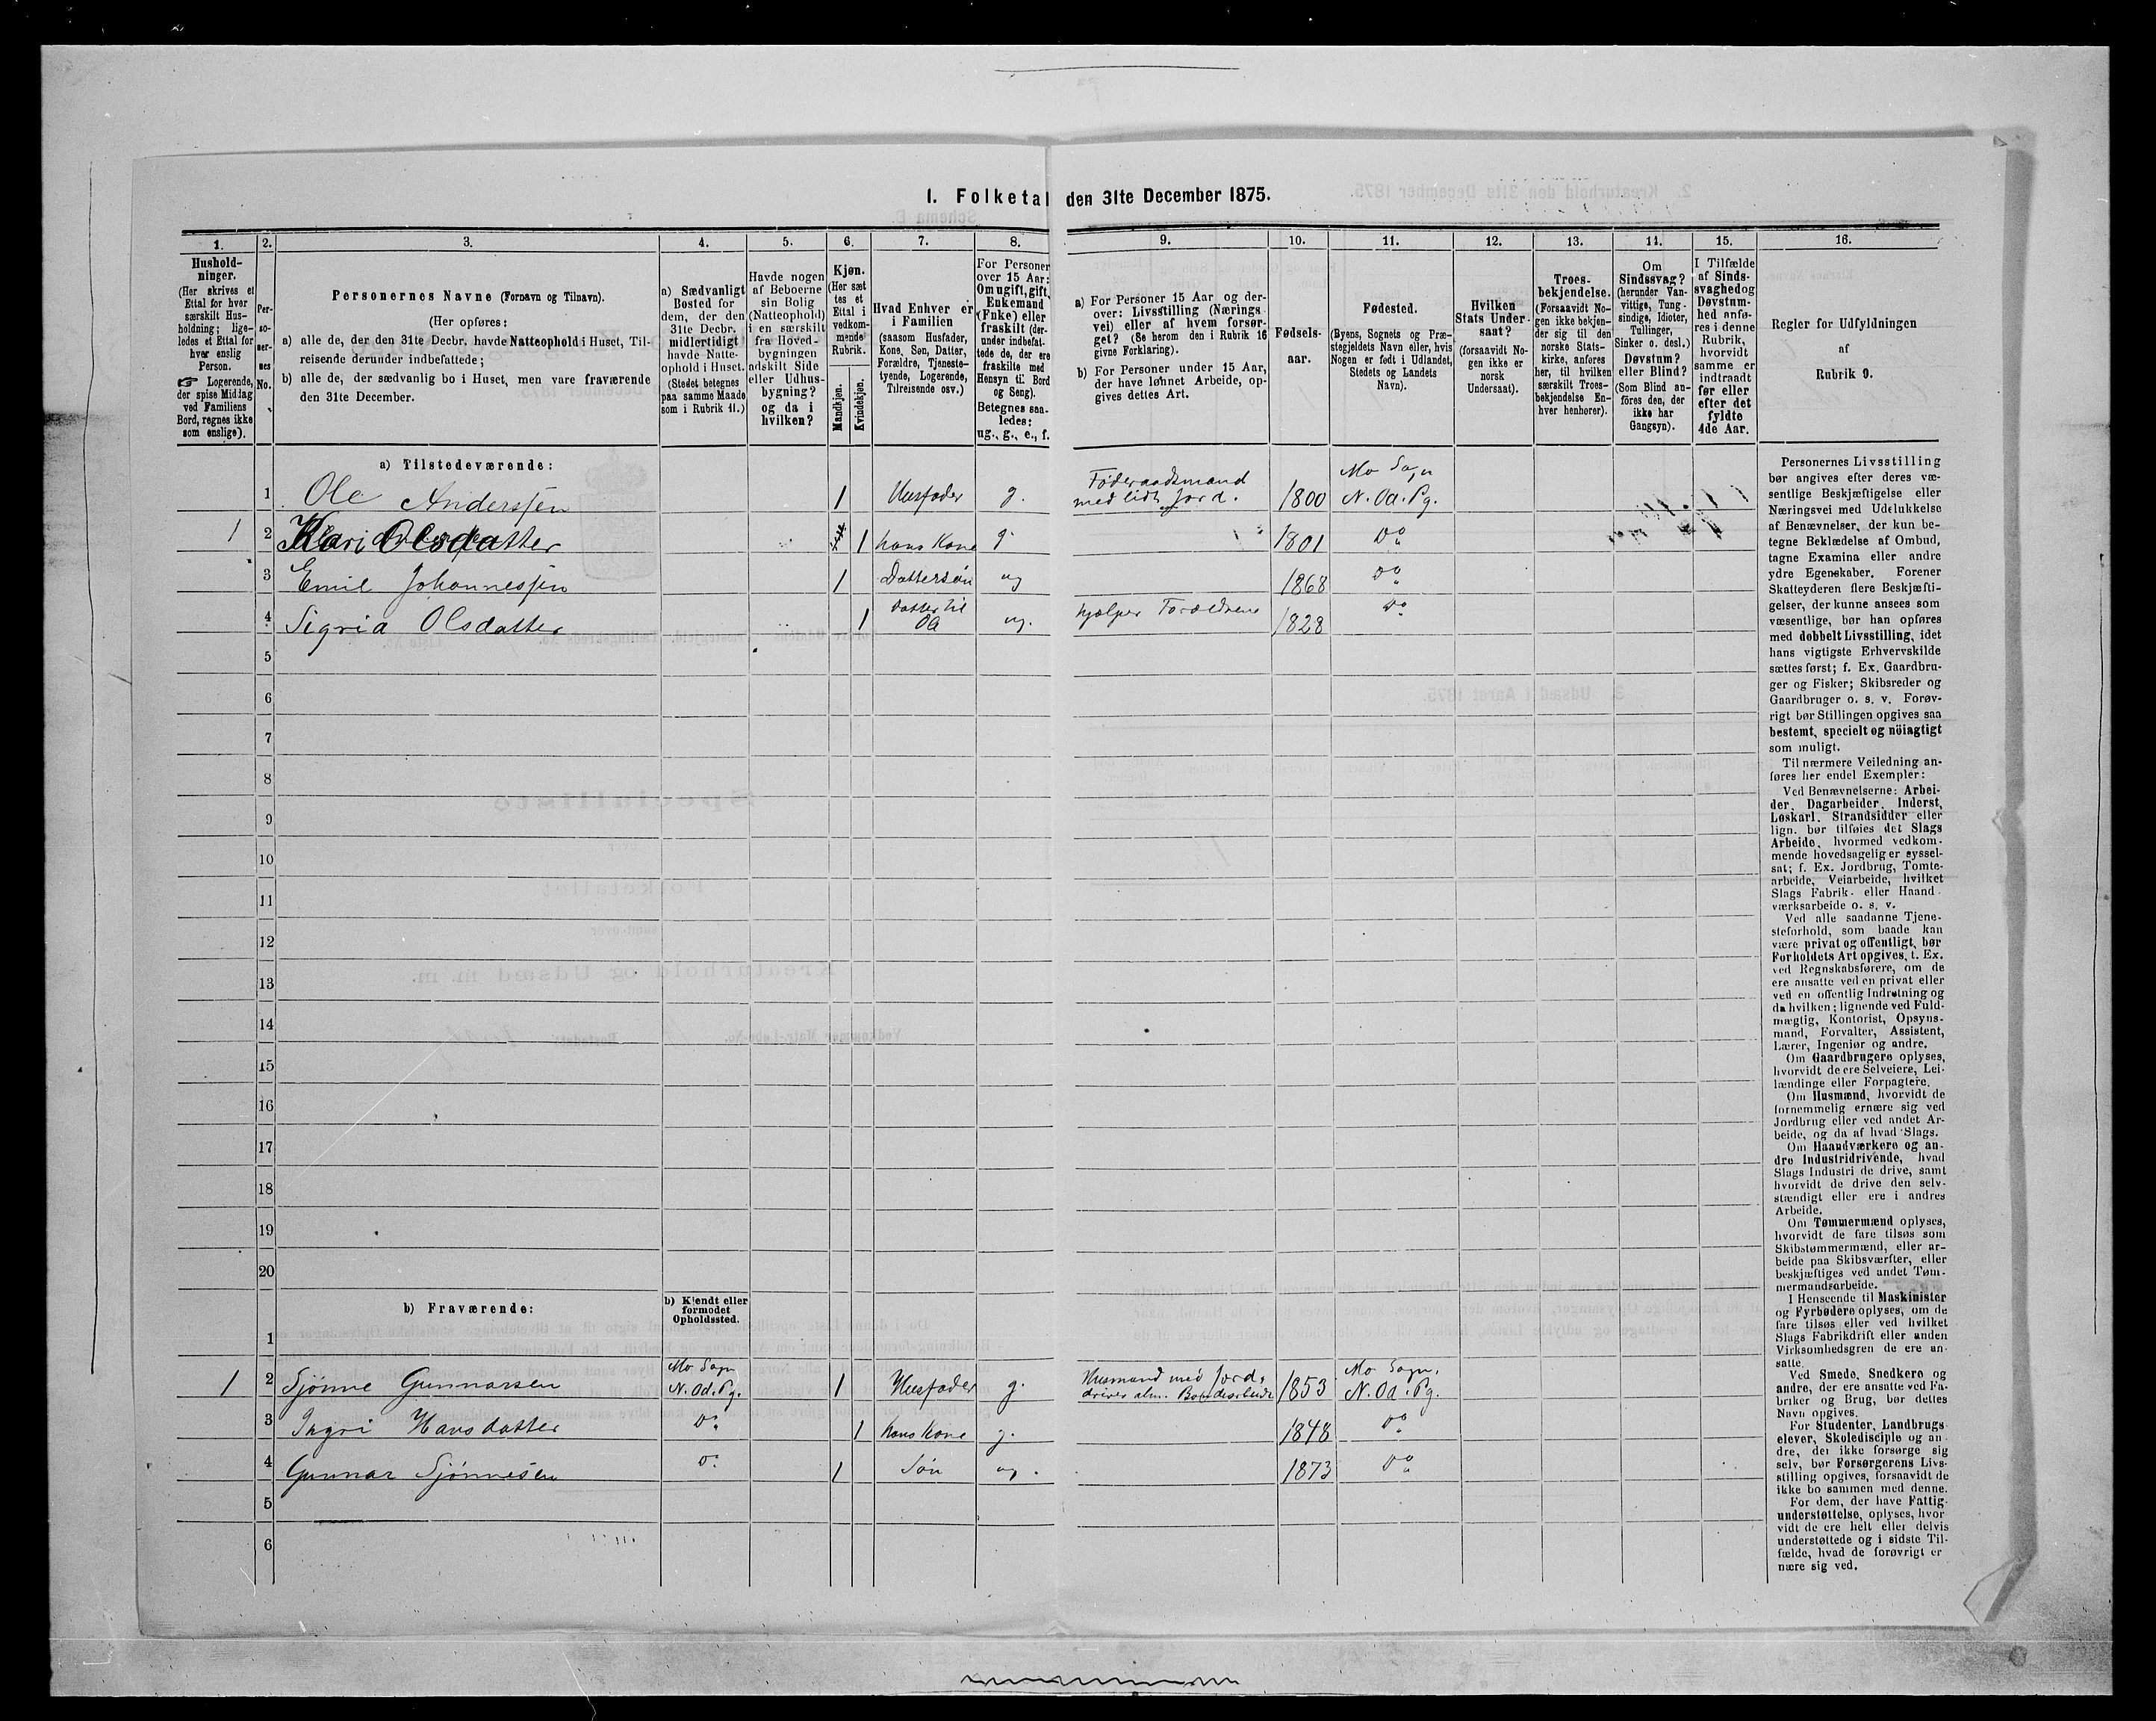 I. Folketal den 31te December 1875.
1.
2.
3.
4.
5.
6.
7.
8.
9.
10.
11.
12.
13.
14.
15.
16.
Hushold-
ninger.
(Her skrives et
Ettal for hver
særskilt Hus-
holdning; lige-
ledes et Ettal for
hver enslig
Person.
☞ Logerende,
der spise Middag
ved Familiens
Bord, regnes ikke
som enslige).
Per-
so-
ner-
nes
No.
Personernes Navne (Fornavn og Tilnavn).
(Her opføres:
a) alle de, der den 31te Decbr. havde Natteophold i Huset, Til-
reisende derunder indbefattede;
b) alle de, der sædvanlig bo i Huset, men vare fraværende
den 31te December.
a) Sædvanligt
Bosted for
dem, der den
31te Decbr.
midlertidigt
havde Natte-
ophold i Huset.
(Stedet betegnes
paa samme Maade
som i Rubrik 11.)
Havde nogen
af Beboerne
sin Bolig
(Natteophold)
i en særskilt
fra Hoved-
bygningen
adskilt Side
eller Udhus-
bygning?
og da i
hvilken?
Kjøn.
(Her sæt
tes et
Ettal i
vedkom-
mende
Rubrik.
Mandkjøn.
Kvindekjøn.
Hvad Enhver er
i Familien
(saasom Husfader,
Kone, Søn, Datter,
Forældre, Tjeneste-
tyende, Logerende,
Tilreisende osv.)
For Personer
over 15 Aar:
Om ugift, gift,
Enkemand
(Enke) eller
fraskilt (der-
under indbefat-
tede de, der ere
fraskilte med
Hensyn til Bord
og Seng).
Betegnes saa-
ledes:
ug., g., e., f.
a) For Personer 15 Aar og der-
over: Livsstilling (Nærings
vei) eller af hvem forsør-
get? (Se herom den i Rubrik 16
givne Forklaring).
b) For Personer under 15 Aar,
der have lønnet Arbeide, op-
gives dettes Art.
Fødsels-
aar.
Fødested.
(Byens, Sognets og Præ-
stegjeldets Navn eller, hvis
Nogen er født i Udlandet,
Stedets og Landets
Navn).
Hvilken
Stats Under
saat?
(forsaavidt No-
gen ikke er
norsk
Undersaat).
Troes-
bekjendelse.
(Forsaavidt No-
gen ikke bekjen-
der sig til den
norske Stats-
kirke, anføres
her, til hvilken
særskilt Troes-
bekjendelse En-
hver henhører).
Om
Sindssvag?
(herunder Van-
vittige, Tung-
sindige, Idioter,
Tullinger,
Sinker o. desl.)
Døvstum?
eller Blind?
(Som Blind an-
føres den, der
ikke har
Gangsyn).
I Tilfælde
af Sinds-
svaghed og
Døvstum-
hed anfø-
res i denne
Rubrik,
hvorvidt
samme er
indtraadt
før eller
efter det
fyldte
4de Aar.
Regler for Udfyldningen
af
Rubrik 9.
a) Tilstedeværende:
1 Ole Anderssen 1 Husfader g. Føderaadsmand med lidt Jord. 1800 Mo Sogn N. Od. Pg.
1 2 Kari Olsdatter 1 hans Kone g. 1801 Do
3 Emil Johannessen 1 Dattersøn ug 1868 Do
4 Sigrid Olsdatter 1 datter til Ole ug. hjælper Forældrene 1828 Do
5
6
7
8
9
10
11
12
13
14
15
16
17
18
19
20
b) Fraværende:
b) Kjendt eller
formodet
Opholdssted.
1
1 2 Sjønne Gunnarsen Mo Sogn N. Od. Pg. 1 Husfader g. Husmand med Jord, driver alm. Bondearbeide 1853 Mo Sogn, N. Od. Pg.
3 Ingri Hansdatter Do 1 hans Kone g. 1848 Do
4 Gunnar Sjønnesen Do 1 Søn ug. 1873 Do
5
6
Personernes Livsstilling
bør angives efter deres væ-
sentlige Beskjæftigelse eller
Næringsvei med Udelukkelse
af Benævnelser, der kun be-
tegne Beklædelse af Ombud,
tagne Examina eller andre
ydre Egenskaber. Forener
Skatteyderen flere Beskjæfti-
gelser, der kunne ansees som
væsentlige, bør han opføres
med dobbelt Livsstilling, idet
hans vigtigste Erhvervskilde
sættes først; f. Ex. Gaardbru-
ger og Fisker; Skibsreder og
Gaardbruger o. s. v. Forøv-
rigt bør Stillingen opgives saa
bestemt, specielt og nöiagtigt
som muligt.
Til nærmere Veiledning an-
føres her endel Exempler:
Ved Benævnelserne: Arbei-
der, Dagarbeider, Inderst,
Løskarl, Strandsidder eller
lign. bør tilføies det Slags
Arbeide, hvormed vedkom-
mende hovedsagelig er syssel-
sat; f. Ex. Jordbrug, Tomte-
arbeide, Veiarbeide, hvilket
Slags Fabrik- eller Haand-
værksarbeide o. s. v.
Ved alle saadanne Tjene-
steforhold, som baade kan
være privat og offentligt, bør
Forholdets Art opgives, t. Ex.
ved Regnskabsførere, om de
ere ansatte ved en privat eller
ved en offentlig Indretning og
da hvilken; lignende ved Fuld-
mægtig, Kontorist, Opsyns-
mand, Forvalter, Assistent,
Lærer, Ingeniør og andre.
Om Gaardbrugere oplyses,
hvorvidt de ere Selveiere, Lei-
lændinge eller Forpagtere.
Om Husmænd, hvorvidt de
fornemmelig ernære sig ved
Jordbrug eller ved andet Ar-
beide, og da af hvad Slags.
Om Haandværkere og an-
dre Industridrivende, hvad
Slags Industri de drive, samt
hvorvidt de drive den selv-
stændigt eller ere i andres
Arbeide.
Om Tømmermænd oplyses,
hvorvidt de fare tilsøs som
Skibstømmermænd, eller ar-
beide paa Skibsværfter, eller
beskjæftiges ved andet Tøm-
mermandsarbeide.
I Henseende til Maskinister
og Fyrbødere oplyses, om de
fare tilsøs eller ved hvilket
Slags Fabrikdrift eller anden
Virksomhedsgren de ere an-
satte.
Ved Smede, Snedkere og
andre, der ere ansatte ved Fa-
briker og Brug, bør dettes
Navn opgives.
For Studenter, Landbrugs
elever, Skoledisciple og an-
dre, der ikke forsørge sig
selv, bør Forsørgerens Livs-
stilling opgives, forsaavidt de
ikke bo sammen med denne.
For dem, der have Fattig-
understøttelse, oplyses, hvor-
vidt de ere helt eller delvis
understøttede og i sidste Til-
fælde, hvad de forøvrigt er-
nære sig ved.